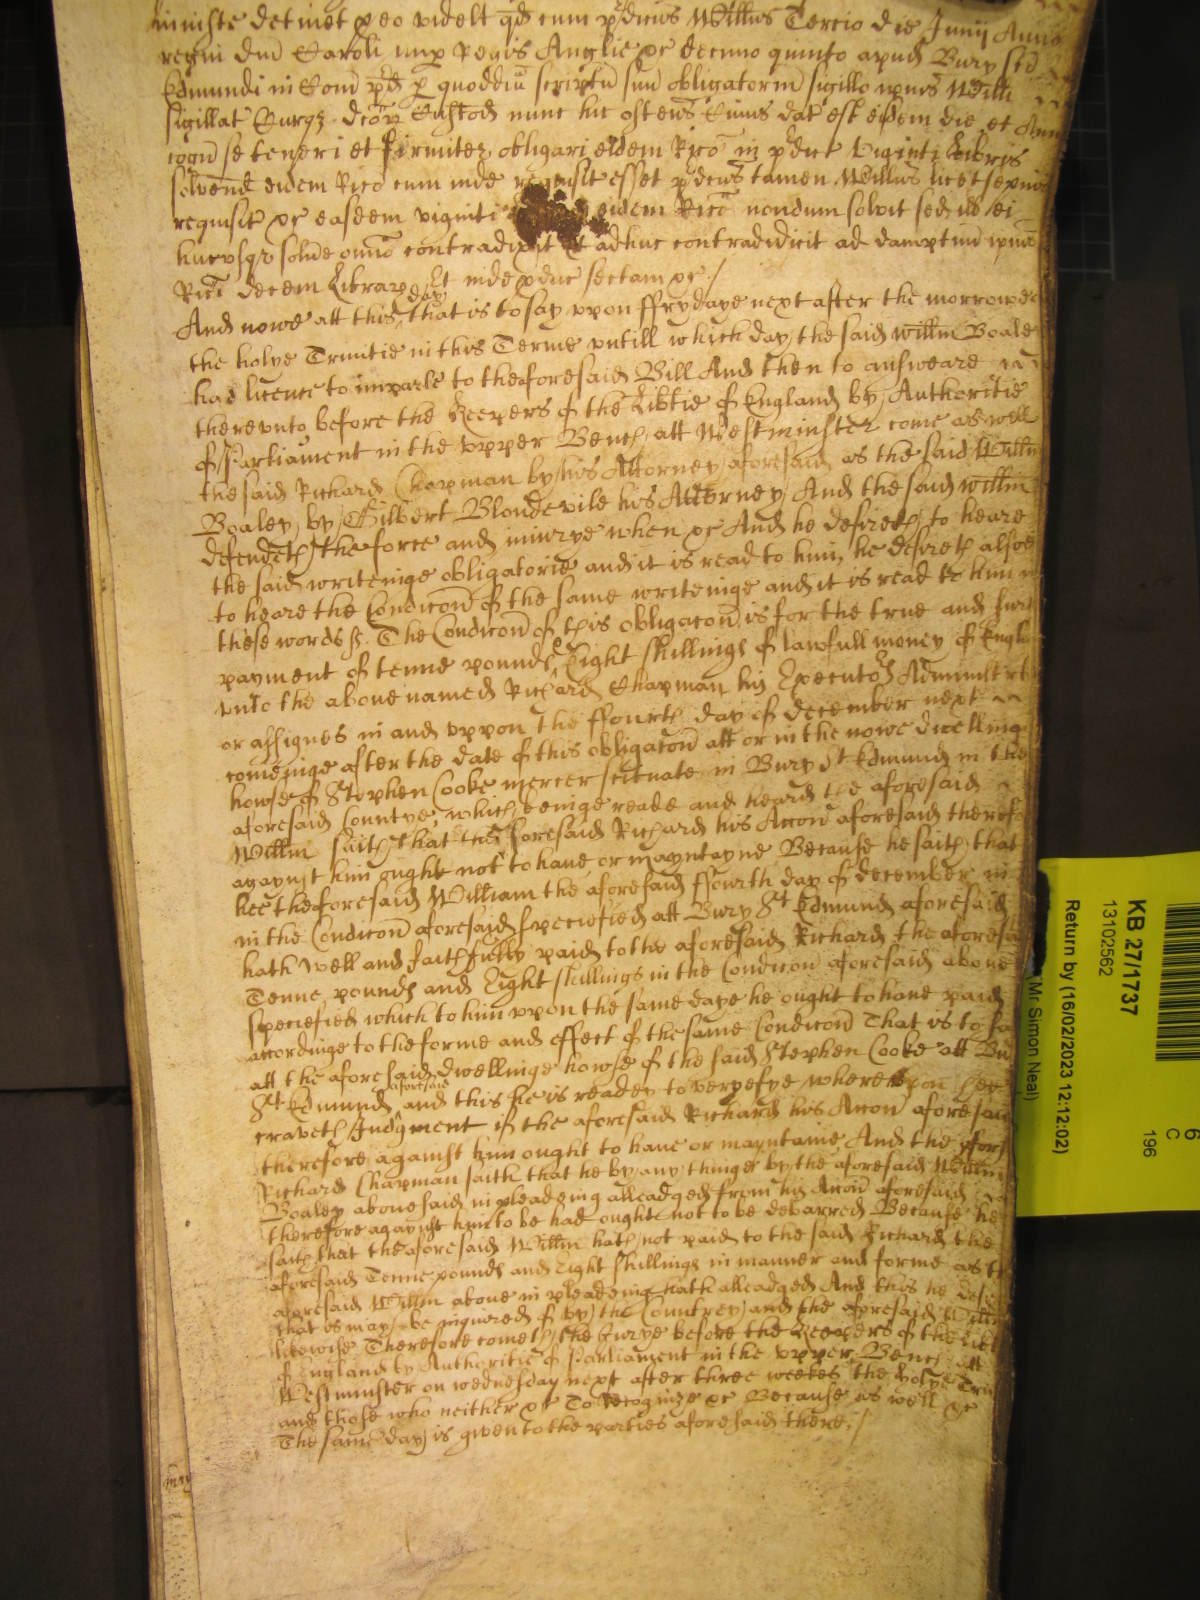 iniuste detinet &c eo videlt qd cum pdcus Willus Tercio die Junij Anno
regni dni Caroli nup Regis Anglie &c decimo quinto apud Bury scī
Edmundi in Com pd p quoddm scriptū suū obligatoriū sigillo ipius Willi
sigillat Cur dcor Custod nunc hic ostens Cuius dat est eisdem die et Anno
cogn se teneri et firmiter obligari eidem Rico in pdict viginti libris
solvend eidem Rico cum inde requisit esset pdcus tamen Willus licet sepius
requisit &c easdem viginti eidem Rico nondum solvit sed ill ei
hucusq solvē omīo contradixit et adhuc contradicit ad dampnū ipius
Rici decem librar Et inde pduc sectam &c /
And nowe att this day that is to say vpon ffrydaye next after the morrowe of
the holye Trinitie in this Terme vntill which day the said Willm Boaley
had licence to imparle to the aforesaid Bill And then to answeare
therevnto before the Keepers of the Libtie of England by Authoritie
of Parliament in the vpper Bench att Westminster come as well
the said Richard Chapman by his Attorney aforesaid as the said Willm
Boaley by Gilbert Blondevile his Attorney And the said Willm
defendeth the force and iniurye when &c And he desireth to heare
the said writeinge obligatorie and it is read to him, he desireth alsoe
to heare the Condicon of the same writeinge and it is read to him in
these words ss. The Condicon of this obligacon is for the true and sure
payment of tenne pounds Eight shillings of lawfull money of Engla
vnto the above named Richard Chapman his Executors Administrat
or assignes in and vppon the ffourth day of December next
comeinge after the date of this obligacon att or in the nowe dwellinge
howse of Stephen Cooke mercer scituate in Bury St Edmunds in the
aforesaid Countye, which beeinge reade and heard the aforesaid
Willm saith that the aforesaid Richard his Accon aforesaid therefo
agaynst him ought not to have or mayntayne Because he saith that
hee the aforesaid William the aforesaid ffourth day of December in
in the Condicon aforesaid speciefied att Bury St Edmunds aforesaid
hath well and faithfully paid to the aforesaid Richard the aforesa
Tenne pounds and Eight shillings in the Condicon aforesaid above
speciefied which to him vpon the same daye he ought to have paid
accordinge to the forme and effect of the same Condicon That is to sa
att the aforesaid dwellinge howse of the said Stephen Cooke att Bu
St Edmunds aforesaid and this he is readey to verefye wherevpon hee
craveth Judgment if the aforesaid Richard his Accon aforesaid
therefore against him ought to have or mayntaine And the afores
Richard Chapman saith that he by any thinge by the aforesaid Willm
Boaley abovesaid in pleadeing alleadged from his Accon aforesaid
therefore agaynst him to be had ought not to be debarred Because he
saith that the aforesaid Willm hath not paid to the said Richard the
aforesaid Tenne pounds and Eight shillings in manner and forme as the
aforesaid Willm above in pleadeing hath alleadged And this he desi
that it may be inquired of by the Countrey and the aforesaid Willm
likewise Therefore cometh the Jurye before the Keepers of the Libt
of England by Authoritie of Parliament in the vpper Bench att
Westminster on wednesday next after three weekes the holye Trin
and those who neither &c To recognize &c Because as well &c
The same day is given to the parties aforesaid there, /
may
KB 27/1737
13102562
Return by (16/02/2023 12:12:02)
Mr Simon Neal)
6
C
196